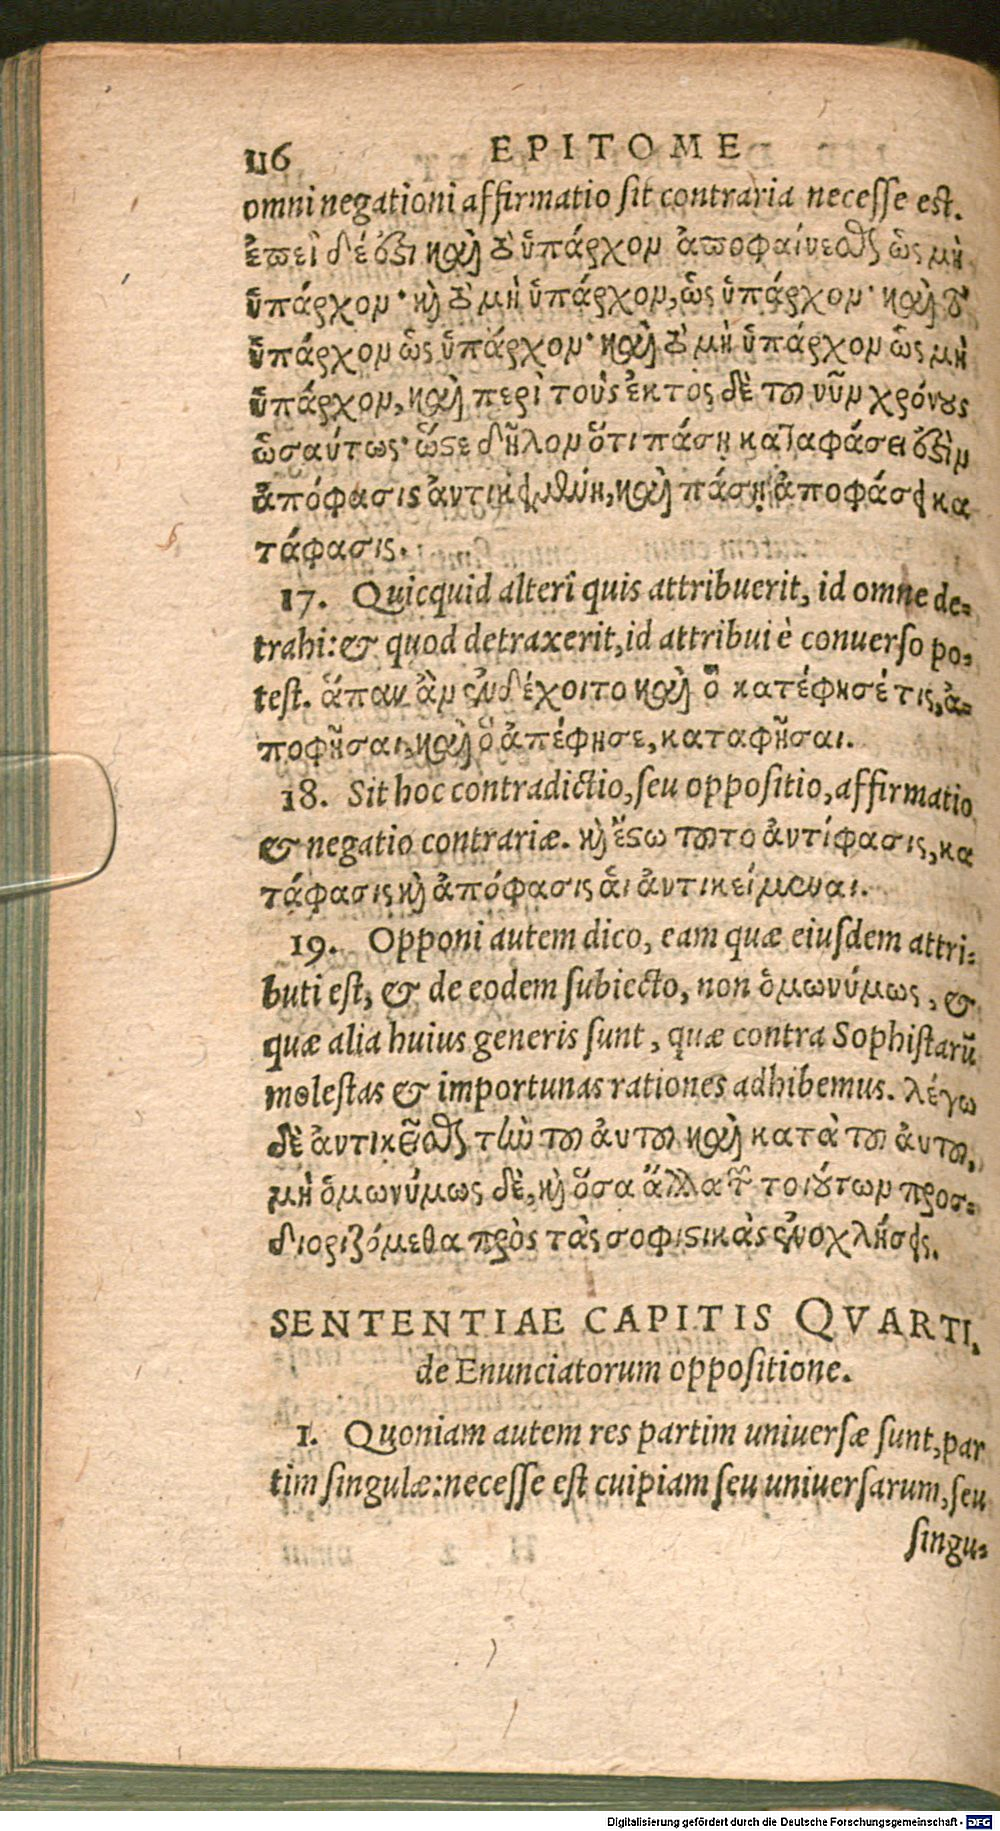 116 EPITOME
omni negationi affirmatio sit contraria necesse est.
ἐπεὶ δέ ἐστι καὶ τὸ ὑπάρχον ἀποφαίνεσθαι ὡς μὴ
ὑπάρχον· κὶ τὸ μὴ ὑπάρχον, ὡς ὑπάρχον· καὶ τὸ
ὑπάρχον ὡς ὑπάρχον· καὶ τὸ μὴ ὑπάρχον ὡς μὴ
ὑπάρχον, καὶ περὶ τοὺς ἐκτὸς δὲ τοῦ νῦν χρόνους
ὡσαύτως· ὥστε δῆλον ὅτι πάσῃ καταφάσει ἐστὶν
ἀπόφασις ἀντικειμένη, καὶ πάσῃ ἀποφάσει κα
τάφασις.
17. Quicquid alteri quis attribuerit, id omne de-
trahi: & quod detraxerit, id attribui è conuerso po-
test. ἅπαν ἂν ἐνδέχοιτο καὶ ὃ κατέφησέ τις, ἀ-
ποφῆσαι, καὶ ὃ ἀπέφησε, καταφῆσαι.
18. Sit hoc contradictio, seu oppositio, affirmatio
& negatio contrariæ. κὶ ἔστω τοῦτο ἀντίφασις, κα
τάφασις κὶ ἀπόφασις ἁι ἀντικείμεναι.
19. Opponi autem dico, eam quæ eiusdem attri-
buti est, & de eodem subiecto, non ὁμωνύμως, &
quæ alia huius generis sunt, quæ contra Sophistarū
molestas & importunas rationes adhibemus. λέγω
δὲ ἀντικεῖσθαι τὴν τοῦ ἀυτοῦ καὶ κατὰ τοῦ ἀυτοῦ,
μὴ ὁμωνύμως δὲ, κὶ ὅσα ἄλλα τῶν τοιούτων προσ-
διοριζόμεθα πρὸς τὰς σοφιστικὰς ἐνοχλήσεις.
SENTENTIAE CAPITIS QVARTI,
de Enunciatorum oppositione.
1. Quoniam autem res partim uniuersæ sunt, par
tim singulæ: necesse est cuipiam seu uniuersarum, seu
singu-
Digitalisierung gefördert durch die Deutsche Forschungsgemeinschaft - DFG